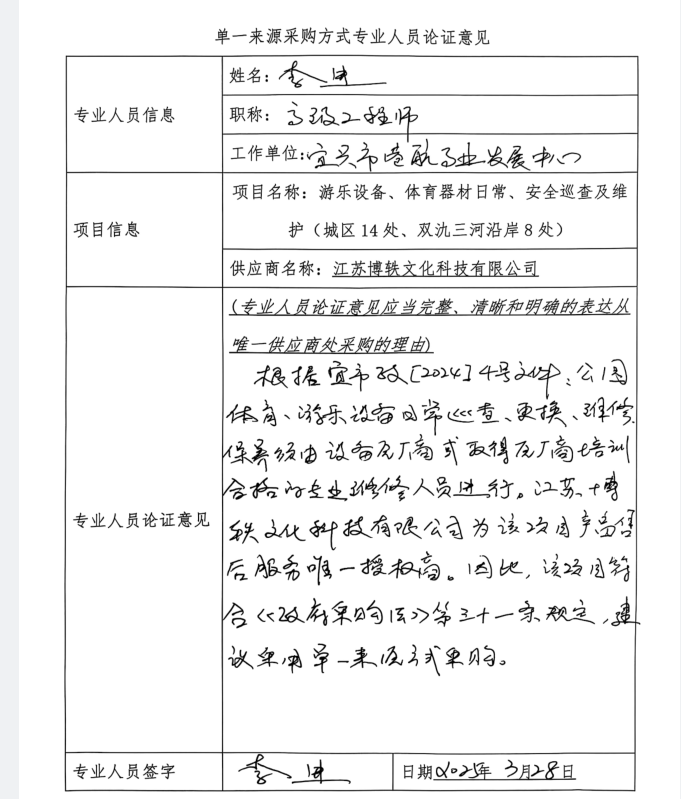 单一来源采购方式专业人员论证意见
专业人员信息
姓名：李进
职称：高级工程师
工作单位：宜兴市港航事业发展中心
项目信息
项目名称：游乐设备、体育器材日常、安全巡查及维
护（城区 14 处、双氿三河沿岸 8 处）
供应商名称：江苏博轶文化科技有限公司
专业人员论证意见
(专业人员论证意见应当完整、清晰和明确的表达从
唯一供应商处采购的理由)
根据宜市政[2024]4号文件，公园
体育、游乐设备日常巡查、更换、维修
保养须由设备原厂商或取得原厂商培训
合格的专业维修人员进行。江苏博
轶文化科技有限公司为该项目产品售
后服务唯一授权商。因此，该项目符
合《政府采购法》第三十一条规定，建
议采用单一来源方式采购。
专业人员签字
李进
日期 2025年 3月28日